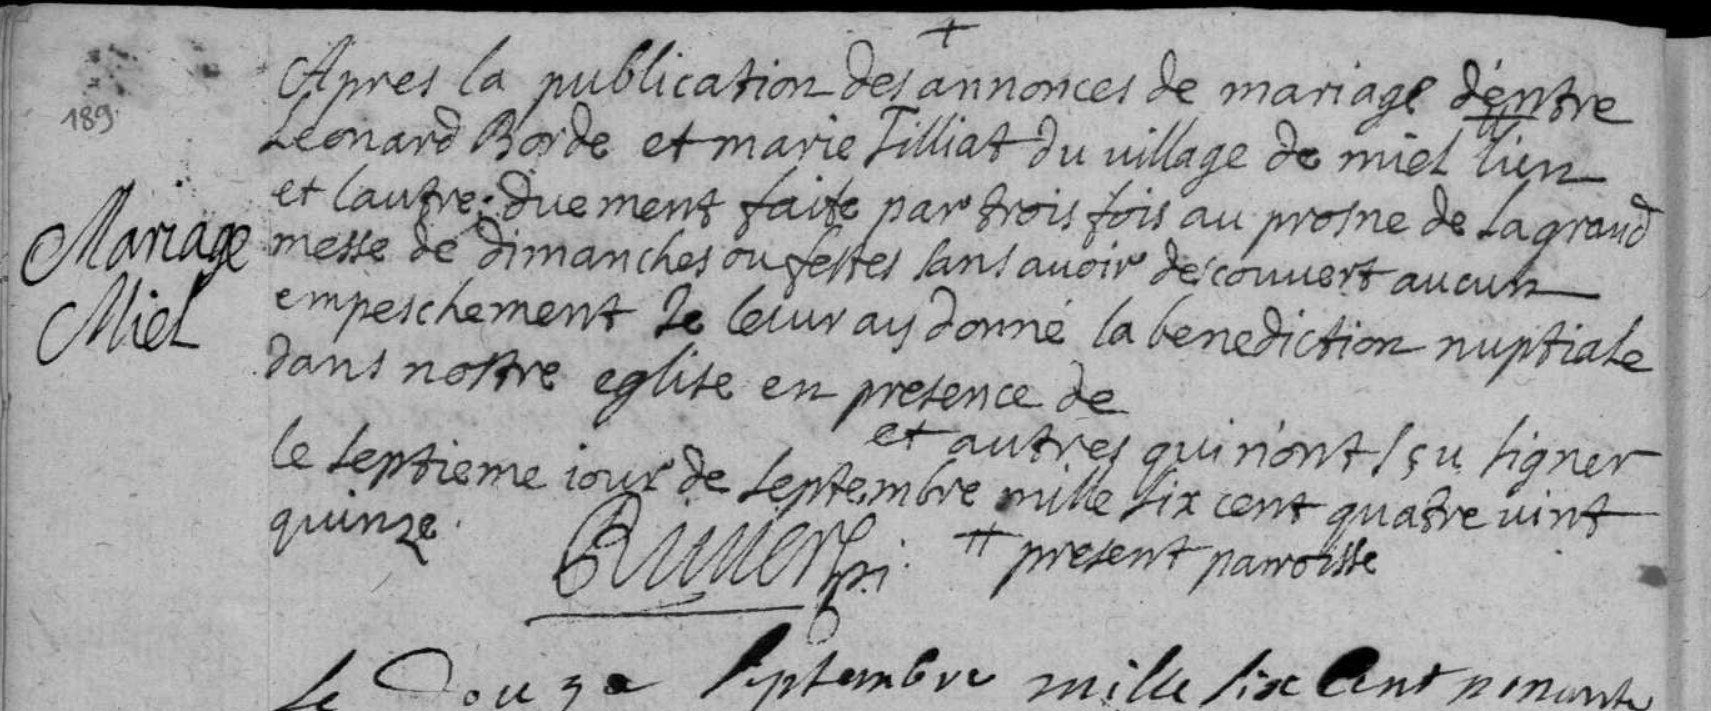 +
189
Apres la publication des annonces de mariage d'entre
Leonard Borde et marie Tilliat du village de miel # l'un
et lautre duement faite par trois fois au prosne de la grand
Mariage
messe de dimanches ou festes sans avoir descouvert aucun
Miel
empeschement Je leur ay donné la benediction nuptiale
dans nostre eglise en presence de
et autres qui n'ont sçu signer
le septieme iour de septembre mille six cent quatre vint
quinze.
# present parroisse
Le Douze septembre mille six cent nonante